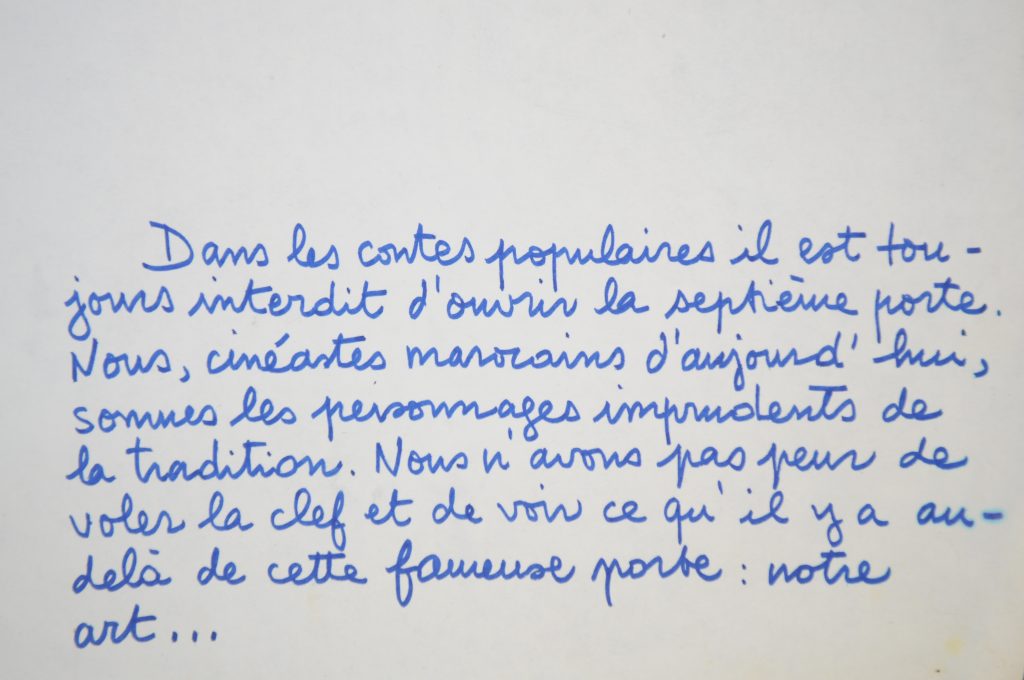 Dans les contes populaires il est tou-
jours interdit d'ouvrir la septième porte.
Nous, cinéastes marocains d'aujourd'hui,
sommes les personnages imprudents de
la tradition. Nous n'avons pas peur de
voler la clef et de voir ce qu'il y a au-
delà de cette fameuse porte : notre
art...